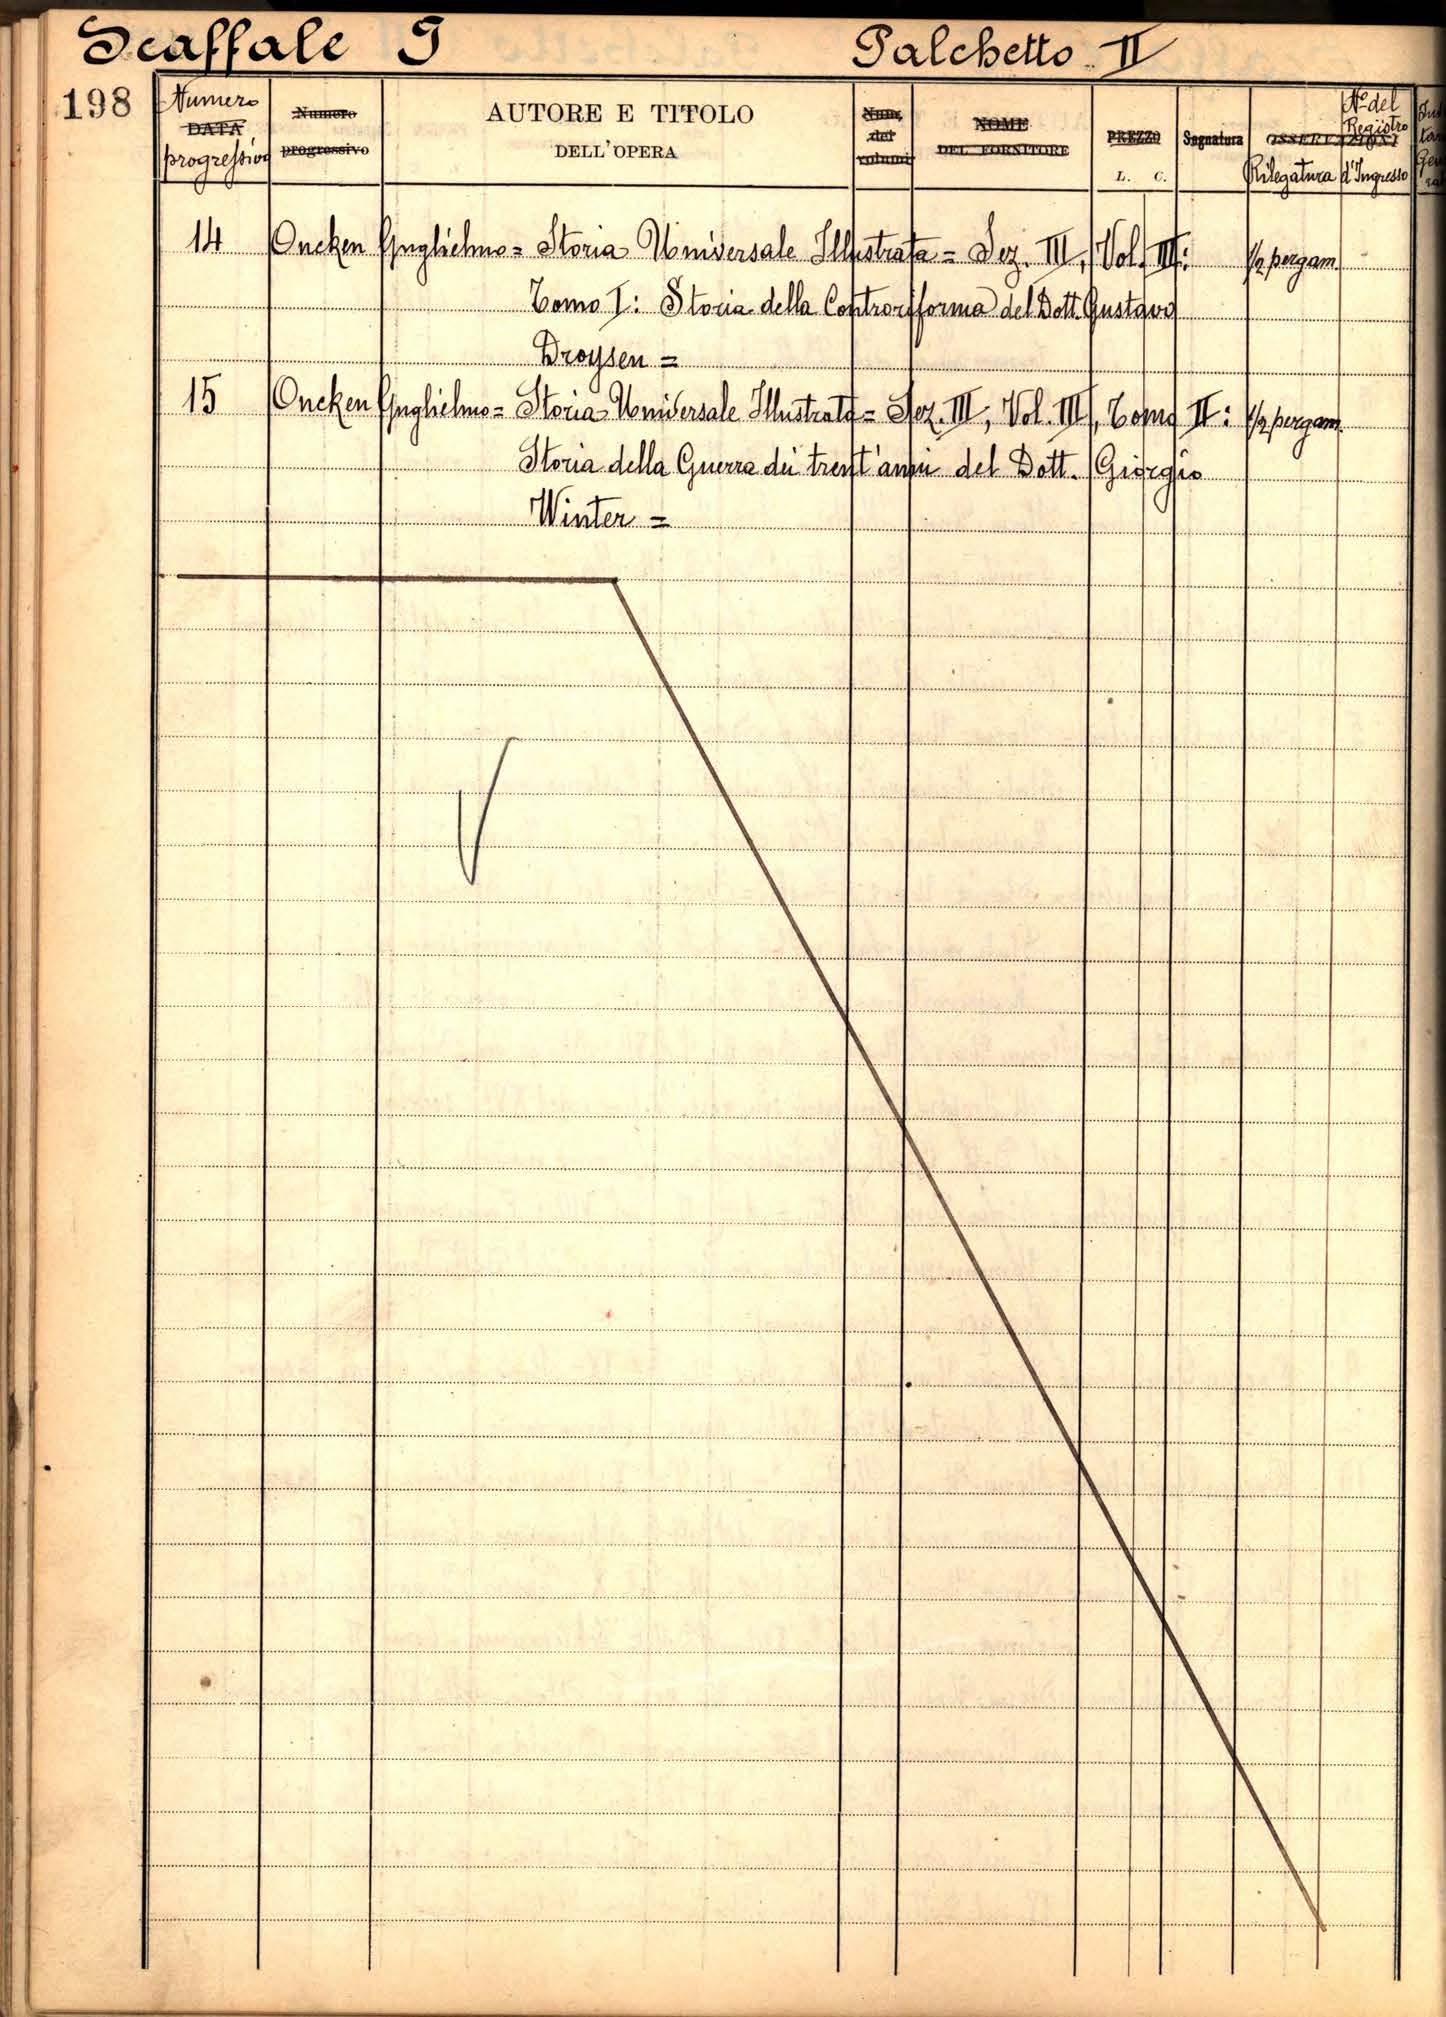 Scaffale I Palchetto II
198
Numero
DATA
progressivo
Numero
progressivo
AUTORE E TITOLO
DELL'OPERA
Num.
dei
volumi
NOME
DEL FORNITORE
PREZZO
L. C.
Segnatura
OSSERVAZIONI
Rilegatura
N.º del
Registro
d'Ingresso
14 Oncken Guglielmo = Storia Universale Illustrata = Sez. III, Vol. III: 1/2 pergam.
Tomo I: Storia della Controriforma del Dott. Gustavo
Droysen =
15 Oncken Guglielmo = Storia Universale Illustrata = Sez. III, Vol. III, Tomo II: 1/2 pergam.
Storia della Guerra dei trent'anni del Dott. Giorgio
Winter =